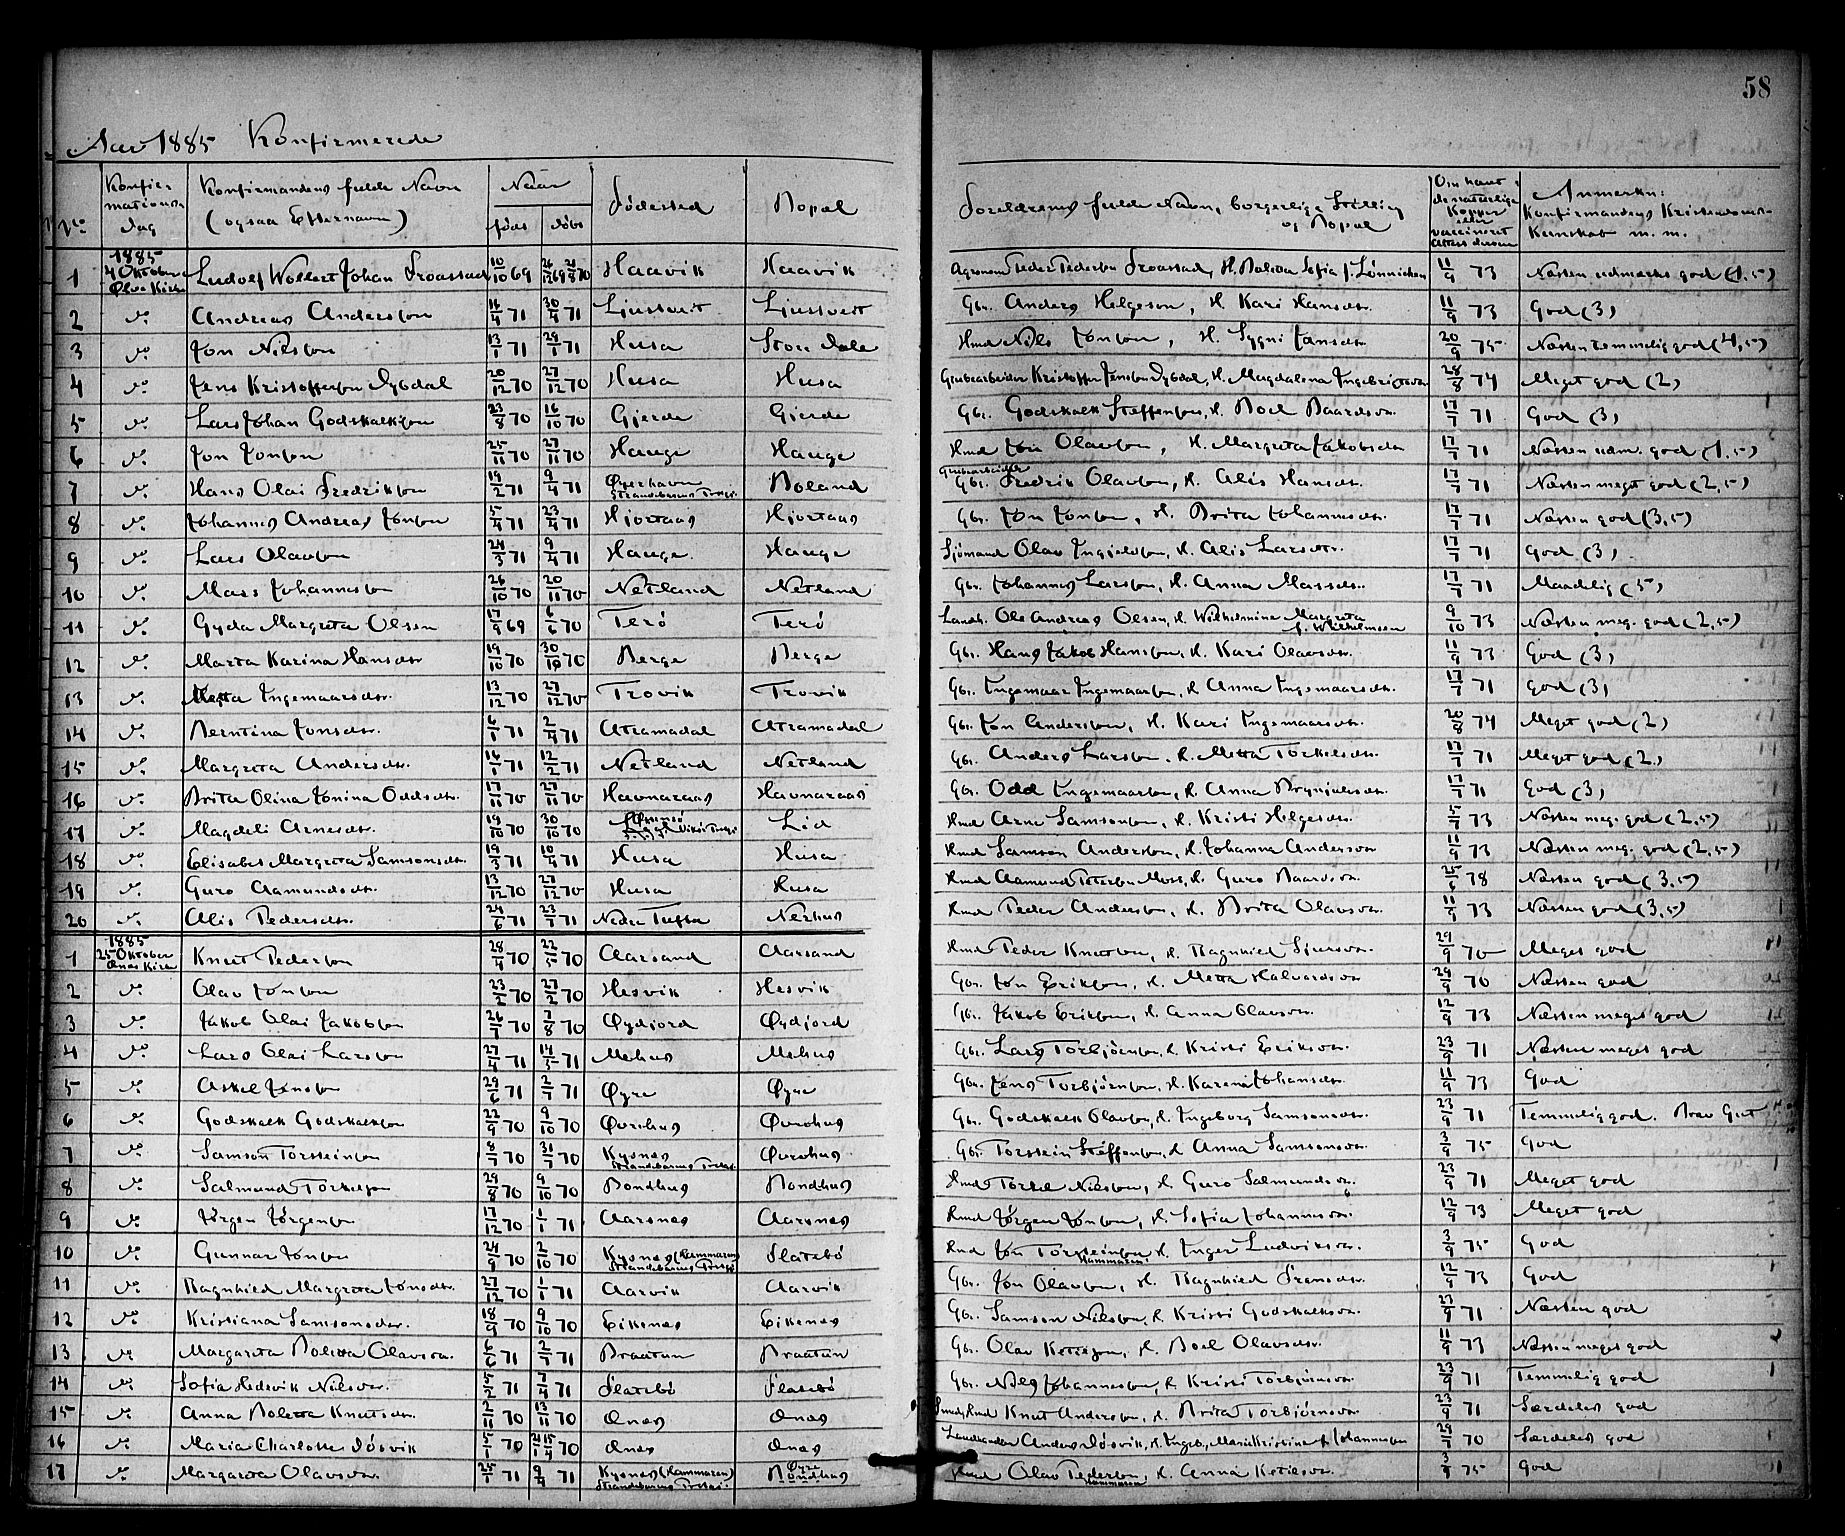 58
Aar 1885 Konfirmerede
No Konfirmationsdag Konfirmandens fulde Navn (ogsaa Efternavn) Naar født døbt Fødested Bopæl Forældrenes fulde Navn, borgerlige Stilling og Bopæl Om havt de naturlige Kopper eller vaccineret Anmerkn: Konfirmandens Kristendoms-Kunskab m. m.
1 1885 4 Oktober Ølve Kirke Ludolf Wollert Johan Troastad 10/10 69 Haavik Haavik Agronom Peder Pederson Troastad, H. Boletta Sofia f. Lønnichen 11/9 73 Næsten udmærket god (1,5)
2 do. Andreas Anderson 16/4 71 30/4 71 Ljustveit Ljustveit Gbr. Anders Helgeson, H. Kari Hansdr. 11/9 73 God (3)
3 do. Jon Nilsson 13/1 71 29/1 71 Husa Store Dale Hmd Nils Jonson, H. Sygni Jansdr. 20/9 75 Næsten temmelig god (4,5)
4 do. Jens Kristofferson Dybdal 20/12 70 27/12 70 Husa Husa Grubearbeider Kristoffer Jenson Dybdal, H. Magdalena Ingebrigtsdr. 28/8 74 Meget god (2)
5 do. Lars Johan Godskalkson 23/8 70 16/10 70 Gjerde Gjerde Gbr. Godskalk Steffenson, H. Boel Baardsdr. 17/7 71 God (3)
6 do. Jon Jonson 25/11 70 27/11 70 Hauge Hauge Hmd Jon Olavson, H. Margreta Jakobsdr. 17/7 71 Næsten udm. god (1,5)
7 do. Hans Olai Fredrikson 19/2 71 9/4 71 Øyerhavn Strandebarms Prstgj. Boland Grubearbeider Gbr. Fredrik Olavson, H. Alis Hansdr. 17/7 71 Næsten meget god (2,5)
8 do. Johannes Andreas Jonson 5/4 71 23/4 71 Hjortaas Hjortaas Gbr. Jon Jonson, H. Brita Johannesdr. 17/7 71 Næsten god (3,5)
9 do. Lars Olavson 24/3 71 9/4 71 Hauge Hauge Sjömand Olav Ingjeldson, H. Alis Larsdtr. 17/7 71 God (3)
10 do. Mass Johanneson 26/10 70 20/11 70 Netland Netland Gbr. Johannes Larson, H. Anna Massdr. 17/7 71 Maadelig (5)
11 do. Gyda Margreta Olsen 17/9 69 6/6 70 Terö Terö Landh. Ole Andreas Olsen, H. Wilhelmine Margreta f. Wilhelmsen 9/10 73 Næsten meg. god (2,5)
12 do. Marta Karina Hansdtr 19/10 70 30/10 70 Berge Berge Gbr. Hans Jakob Hanson, H. Kari Olavsdr. 11/9 73 God (3)
13 do. Metta Ingemaarsdtr. 13/12 70 27/12 70 Trovik Trovik Gbr. Ingemaar Ingemaarson, H. Anna Ingemaarsdr. 17/7 71 God (3)
14 do. Berntina Jonsdtr. 6/1 71 2/4 71 Atramadal Atramadal Gbr. Jon Anderson, H. Kari Ingemaarsdr. 20/8 74 Meget god (2)
15 do. Margreta Andersdtr. 16/1 71 12/2 71 Netland Netland Gbr. Anders Larson, H. Metta Torkelsdr. 17/7 71 Meget god (2)
16 do. Brita Olina Jonina Oddsdtr. 17/11 70 27/11 70 Havnaraas Havnaraas Gbr. Odd Ingemaarson, H. Anna Brynjulvsdr. 17/7 71 God (3)
17 do. Magdeli Arnesdtr. 19/10 70 30/10 70 Lid Hmd Arne Samsonson, H. Kristi Helgesdr. 5/7 73 Næsten meg. god (2,5)
18 do. Elisabet Margreta Samsonsdtr. 19/3 71 10/4 71 Husa Husa Hmd Samson Anderson, H. Johanna Andersdr 11/9 73 Næsten meg. god (2,5)
19 do. Guro Aamundsdtr. 13/12 70 27/12 70 Husa Husa Hmd Aamund Peterson Moss, H. Guro Baardsdr. 25/6 78 Næsten god (3,5)
20 do. Alis Pedersdtr. 24/6 71 23/7 71 Nedre Tufta Nerhus Hmd Peder Anderson, H. Brita Olavsdr. 11/9 73 Næsten god (3,5)
1 1885 25 Oktober Ænes Kirke Knut Pederson 28/4 70 22/5 70 Aarsand Aarsand Hmd Peder Knutson, H. Ragnhied Sjursdr. 29/9 70 Meget god
2 do. Olav Jonson 23/2 70 27/2 70 Hesvik Hesvik Gbr. Jon Erikson, H. Metta Halvardsdr 29/9 70 Næsten god
3 do. Jakob Olai Jakobson 26/7 70 7/8 70 Øydjord Øydjord Gbr. Jakob Erikson, H. Anna Olavsdr. 12/9 73 Næsten meget god
4 do. Lars Olai Larson 27/4 71 14/5 71 Mehus Mehus Gbr. Lars Torbjörnson, H. Kristi Eriksdr. 23/9 71 Næsten meget god
5 do. Askel Jenson 29/6 71 2/7 71 Øyre Øyre Gbr. Jens Torbjörnson, H. Karena Johansdr. 11/9 73 God
6 do. Godskalk Godskalkson 22/9 70 9/10 70 Øvrehus Øvrehus Gbr. Godskalk Olavson, H. Ingeborg Samsonsdtr. 23/9 71 Temmelig god. Brav Gut
7 do. Samson Torsteinson 8/7 70 31/7 70 Kysnes Strandebarms Prstgj. Øvrehus Gbr. Torstein Steffenson, H. Anna Samsonsdr. 3/9 75 God
8 do. Salmund Torkelson 29/8 70 9/10 70 Bondhus Bondhus Hmd Torkel Nilsson, H. Guro Salmundsdr. 23/9 71 Meget god
9 do. Jørgen Jørgenson 17/12 70 1/1 71 Aarsnes Aarsnes Hmd Jørgen Jonson, H. Sofia Johannesdr. 12/9 73 Meget god
10 do. Gunnar Jonson 24/9 70 2/10 70 Kysnes (Hammaren) Strandebarms Prstgj. Flatebö Hmd Jon Torsteinson Hammaren, H. Inger Ludviksdr. 3/9 75 God
11 do. Ragnhied Margreta Jonsdtr. 27/12 70 1/1 71 Aarvik Aarvik Gbr. Jon Olavson, H. Ragnhied Svensdr. 12/9 73 God
12 do. Kristiana Samsonsdtr. 18/9 70 9/10 70 Eikenes Eikenes Gbr. Samson Nilsson, H. Kristi Godskalksdr. 27/9 71 Næsten god
13 do. Margareta Boletta Olavsdtr. 6/6 71 2/7 71 Braatun Braatun Gbr. Olav Ketilson, H. Boel Olavsdr. 11/9 73 Næsten meget god
14 do. Sofia Hedevik Nilsdr. 5/2 71 7/4 71 Flatebö Flatebö Gbr. Nils Johanneson, H. Kristi Torbjörnsdr 23/9 71 Temmelig god
15 do. Anna Boletta Knutsdtr. 2/11 70 13/11 70 Ænes Ænes Hmd Knut Anderson, H. Brita Torbjörnsdr 23/9 71 Særdeles god
16 do. Maria Charlotte Dösvik 5/1 70 Ænes Ænes Landhandler Anders Dösvik, H. Ingeb. Maria Kristine f. Johannesen 29/7 70 Særdeles god
17 do. Margareta Olavsdr. 25/1 71 9/4 71 Kysnes (Hammaren) Strandebarms Prstgj. Øyre Bondhus Hmd Olav Pederson Hammaren, H. Anna Ketilsdr. 3/9 75 God